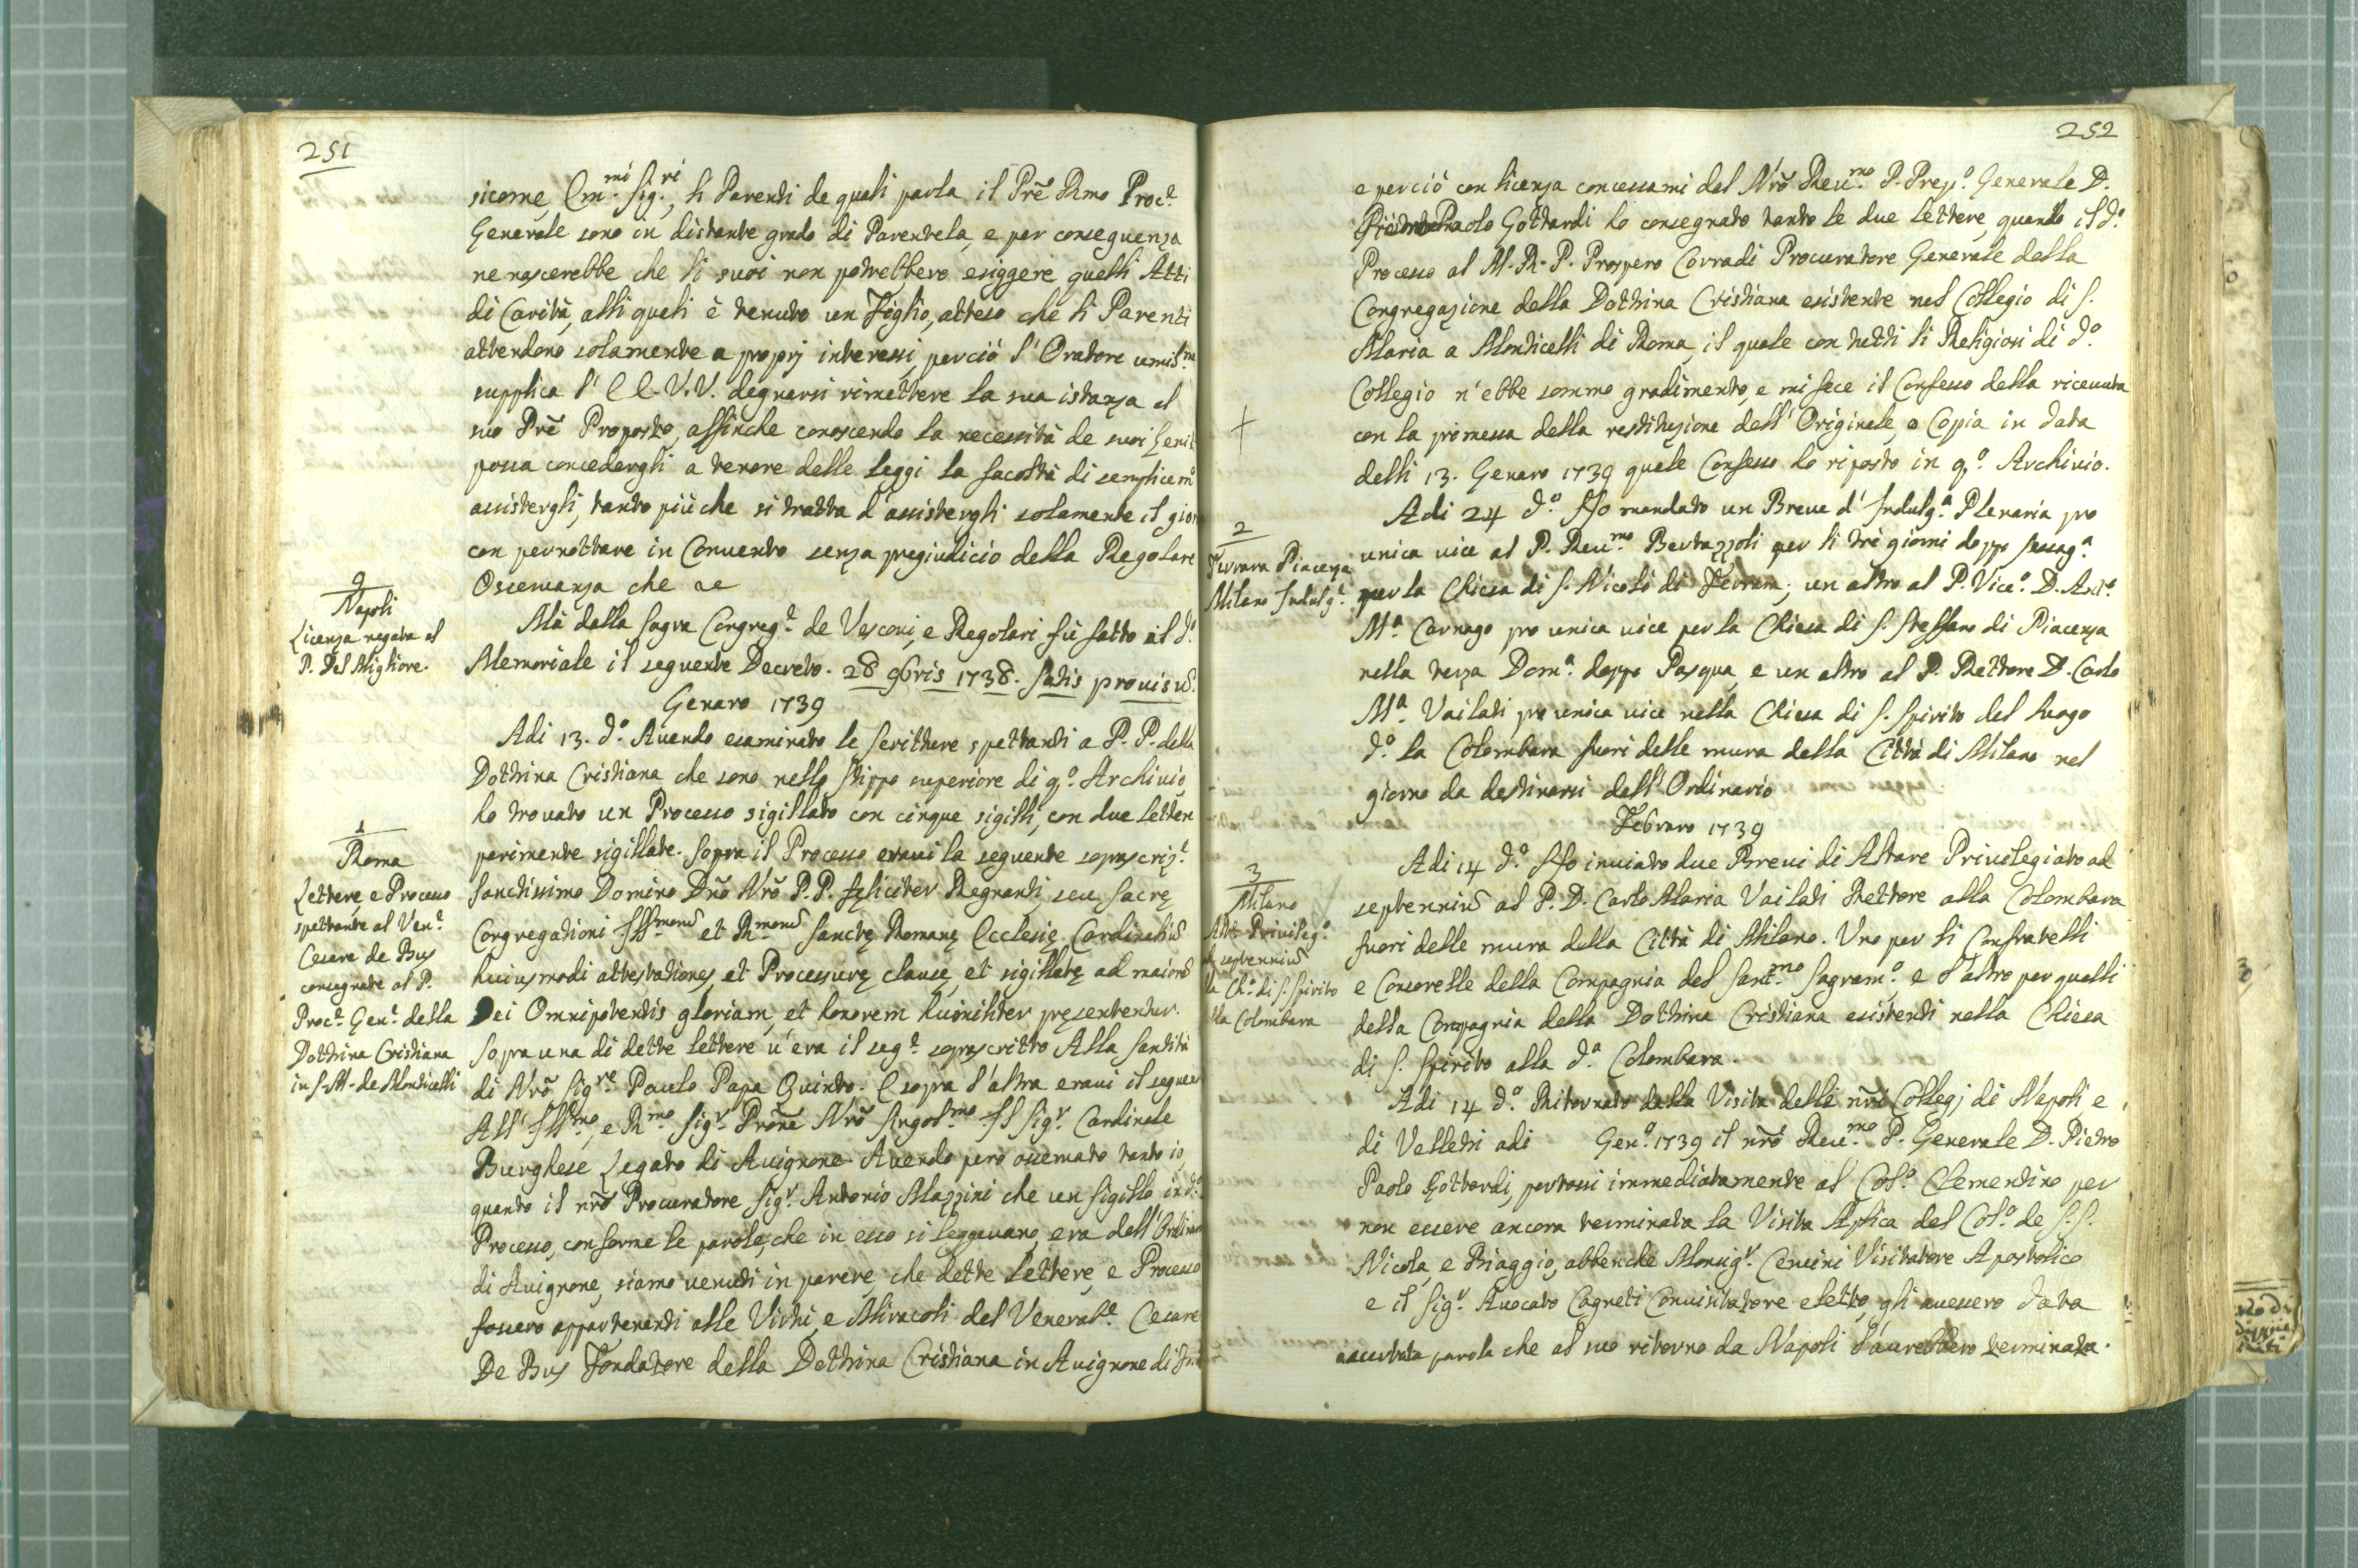 251
sicome, Em.mi Sig.ri, li Parenti de quali parla il Prē Rmo Proc.e
Generale sono in distante grado di Parentela, e per conseguenza
ne nascerebbe che li suoi non potrebbero esiggere quelli Atti
di Carità, alli quali è tenuto un Figlio, atteso che li Parenti
attendono solamente a proprj interessi, perciò l'Oratore umil.me
supplica l'E E. V.V. degnarsi rimettere la sua istanza al
suo Prē Proposto, affinche conoscendo la necessità de suoi Genit
possa concedergli a tenore delle leggi la facoltà di semplicem
assistergli, tanto più che si tratta d'assistergli solamente il gior
con pernottare in Convento senza pregiudicio della Regolare
Osservanza che
9
Napoli
Licenza negata al
P. Del Migliore.
Mà dalla Sagra Congreg.e de Vescovi, e Regolari fù fatto al d.o
Memoriale il seguente Decreto. 28 9bris 1738. Satis provisū.
Genaro 1739
Adi 13. d.o Avendo esaminato le scritture spettanti a P. P. della
Dottrina Cristiana che sono nello stippo superiore di q.o Archivio,
ho trovato un Processo sigillato con cinque sigilli, con due letter
parimente sigillate. Sopra il Processo eravi la seguente soprascriz.e
1
Roma
Lettere, e Processo
spettante al Ven.e
Cesare de Bus
consegnate al P.
Proc.e Gen.e della
Dottrina Cristiana
in S. M. de Monticelli
Sanctissimo Domino Dño Nrō P. P. fęliciter Regnanti, seu Sacrę
Congregationi Illmorū et Rmorū Sanctę Romanę Ecclesię Cardinaliū
huiusmodi attestationes, et Processurę clausę, et sigillatę ad maiorē
Dei Omnipotentis gloriam, et honorem humiliter pręsententur.
Sopra una di dette lettere v'era il seg.e soprascritto Alla Santità
di Nrō Sig.re Paulo Papa Quinto. E sopra l'altra eravi il seguen
All'Ill.mo, e R.mo Sig.r Prōne Nrō Singol.mo Il Sig.r Cardinale
Burghese Legato di Avignone. Avendo però osservato tanto io,
quanto il nrō Procuratore Sig.r Antonio Mazzini che un sigillo in d.o
Processo, conforme le parole, che in esso si leggevano, era dell'Ordinar
di Avignone, siamo venuti in parere, che dette Lettere, e Processo
fossero appartenenti alle Virtù, e Miracoli del Venerab.e Cesare
De Bus Fondatore della Dottrina Cristiana in Avignone di
252
e perciò con licenza concessami dal Nrō Reu.mo P. Prep.o Generale D.
Paolo Gottardi ho consegnato tanto le due Lettere, quanto il d.o
Processo al M. R. P. Prospero Corradi Procuratore Generale della
Congregazione della Dottrina Cristiana esistente nel Collegio di S.
Maria a Monticelli di Roma, il quale con tutti li Religiosi di d.o
Collegio n'ebbe sommo gradimento, e mi fece il Confesso della ricevuta
con la promessa della restituzione dell'Originale, o Copia in data
delli 13. Genaro 1739 quale Confesso ho riposto in q.o Archivio.
+
2
Ferrara Piacenza
Milano Indulg.e
Adi 24 d.o Ho mandato un Breve d'Indulg.a Plenaria pro
unica vice al P. Reu.mo Bertazzoli per li trè giorni doppo Sessag.a
per la Chiesa di S. Nicolò di Ferrara; un altro al P. Vice.o D. Ant.o
M.a Carnago pro unica vice per la Chiesa di S. Steffano di Piacenza
nella terza Dom.a doppo Pasqua, e un altro al P. Rettore D. Carlo
M.a Vailati pro unica vice nella Chiesa di S. Spirito del luogo
d.o la Colombara fuori delle mura della Città di Milano nel
giorno da destinarsi dall'Ordinario
Febraro 1739
3
Milano
Alt. Privileg.o
ad septenniū
la Ch.a di S. Spirito
alla Colombara
Adi 14 d.o Ho inviato due Brevi di Altare Privilegiato ad
septenniū al P. D. Carlo Maria Vailati Rettore alla Colombara
fuori delle mura della Città di Milano. Uno per li Confratelli
e Consorelle della Compagnia del Sant.mo Sagram.o e l'altro per quelli
della Compagnia della Dottrina Cristiana esistenti nella Chiesa
di S. Spirito alla d.a Colombara.
Adi 14 d.o Ritornato dalla Visita delli nrī Collegj di Napoli e
di Velletri adi Gen.o 1739 il nrō Reu.mo P. Generale D. Pietro
Paolo Gottardi, portossi immediatamente al Col.o Clementino per
non essere ancora terminata la Visita Aplica del Col.o de S. S.
Nicola, e Biaggio, abbenche Monsig.r Cervini Visitatore Apostolico
e il Sig.r Avocato Cagneti Convisitatore eletto, gli avessero data
accertata parola che al suo ritorno da Napoli l'avrebbero terminata.